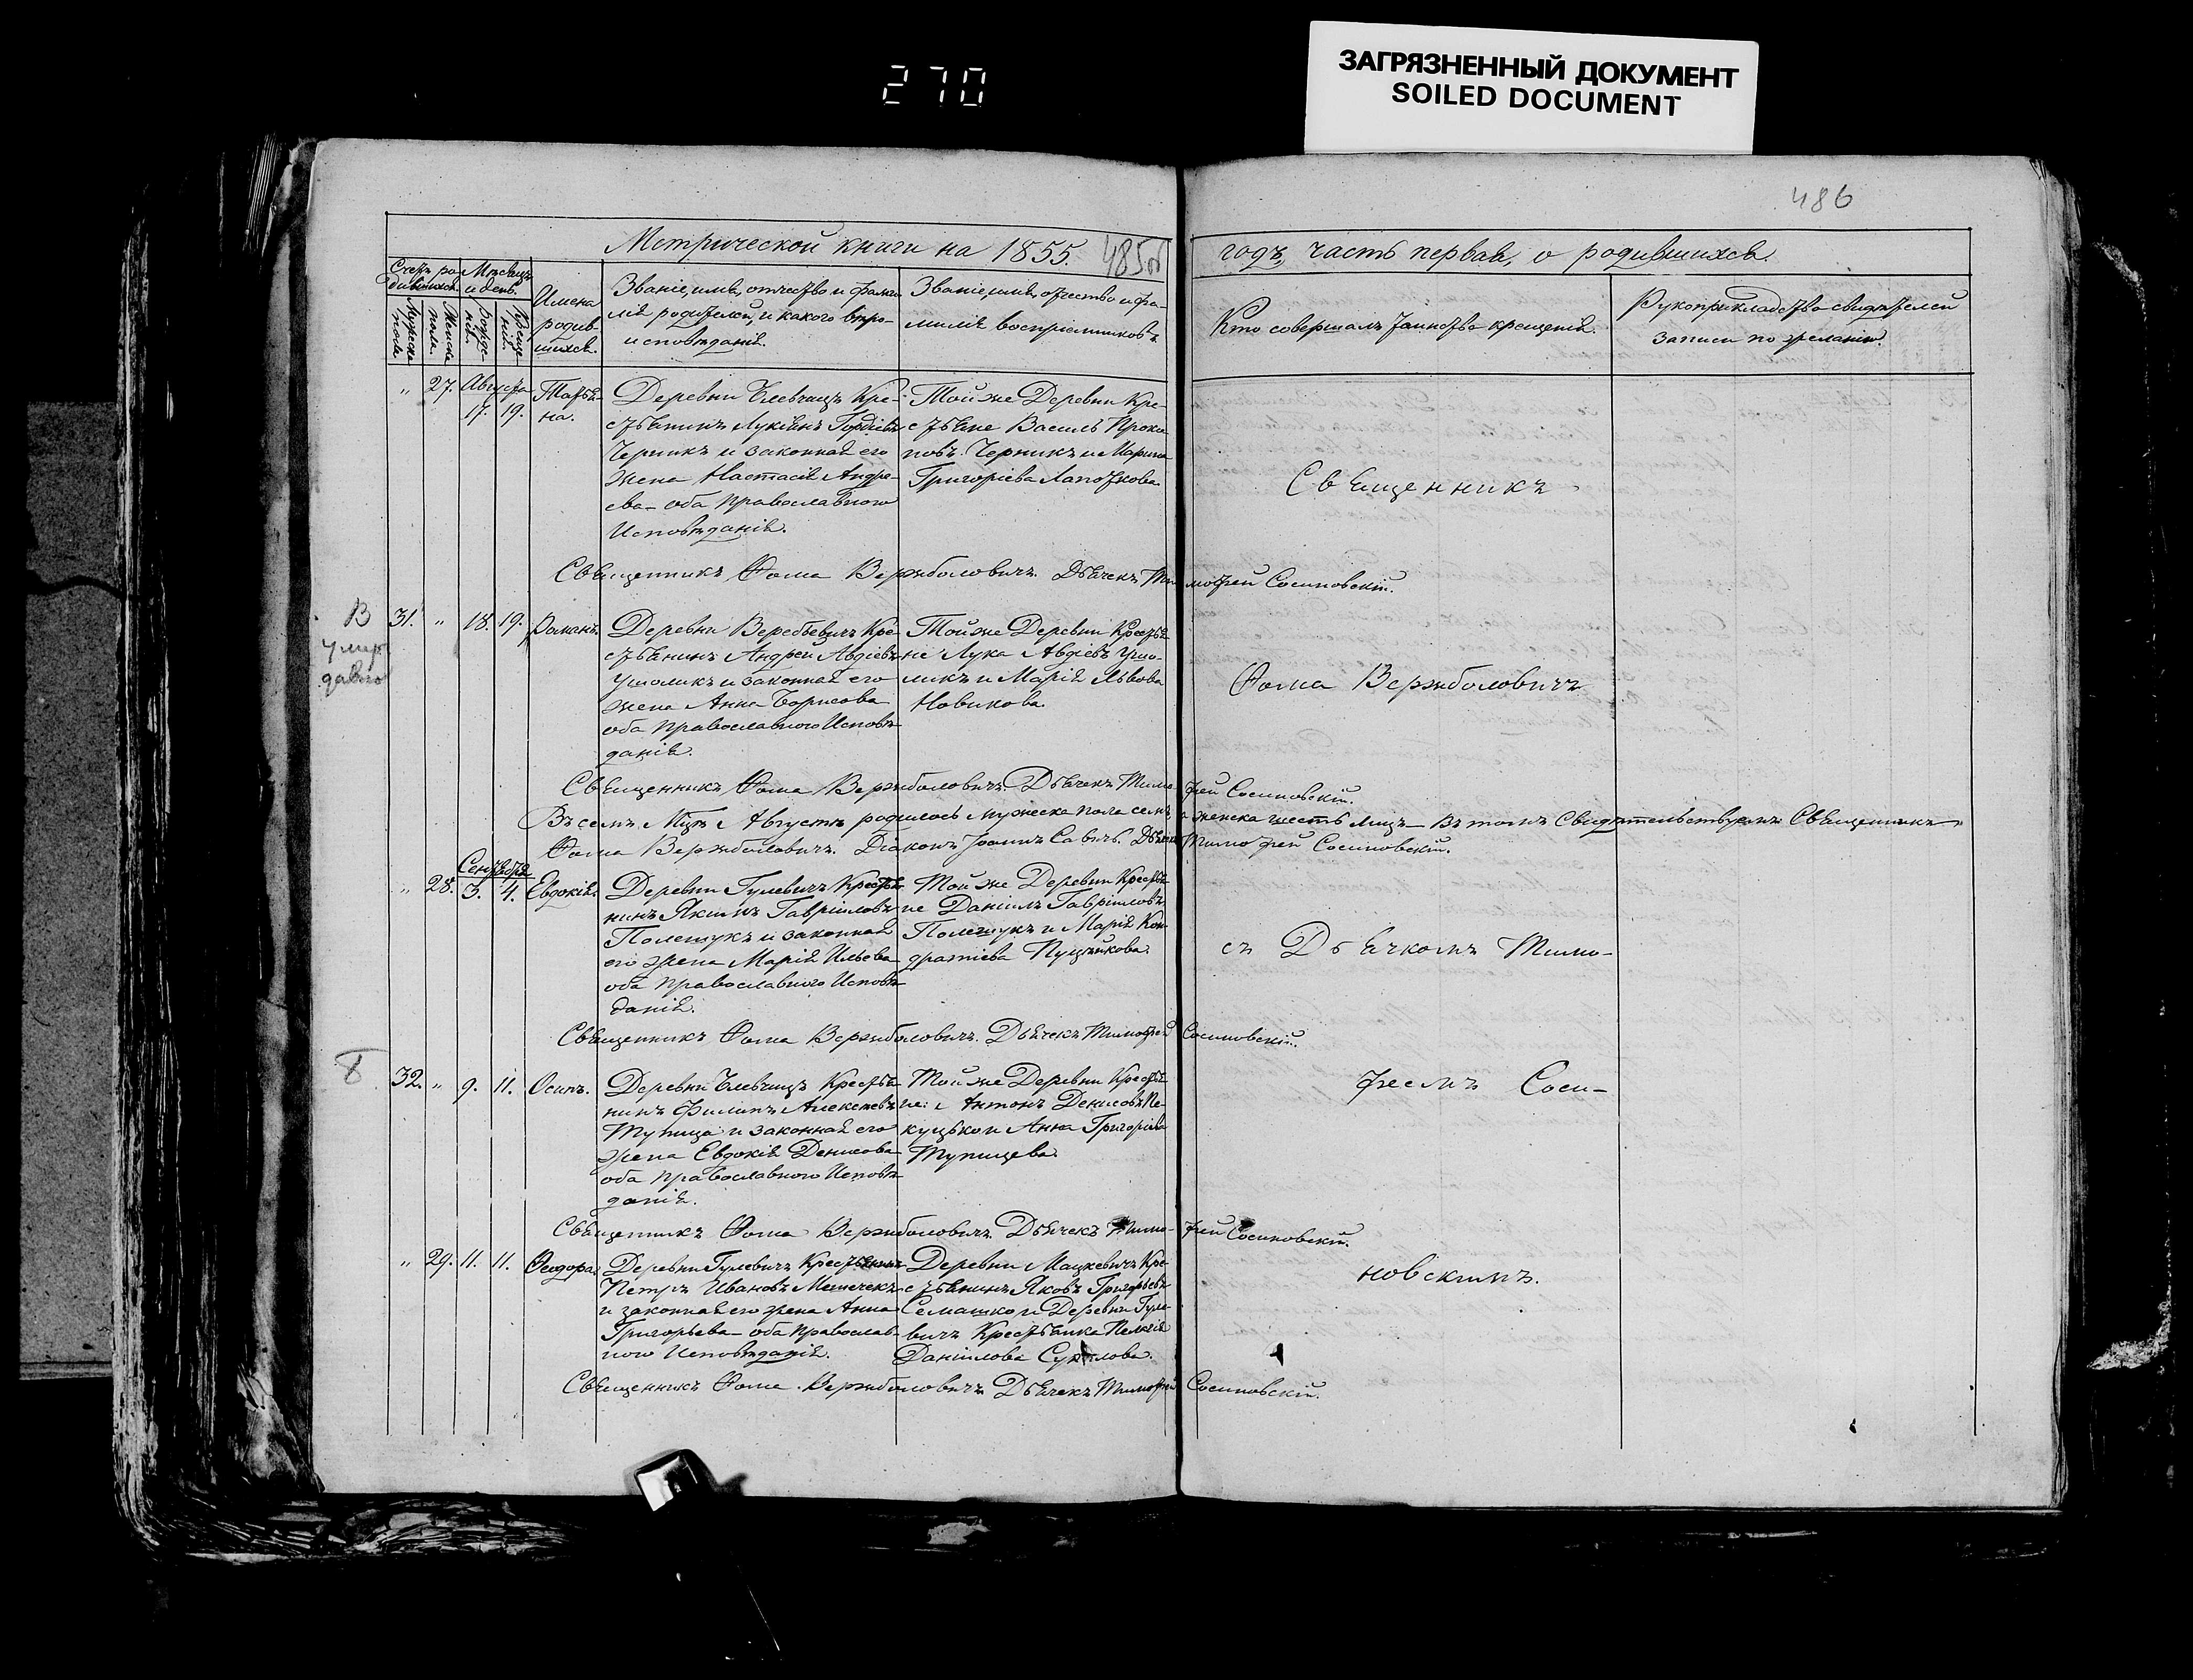 270
ЗАГРЯЗНЕННЫЙ ДОКУМЕНТ
SOILED DOCUMENT
486
Метрической книги на 1855. 485об
годъ, часть первая, о родившихся.
Счетъ родившихся.
Мѣсяцъ и день.
Мужеска пола.
Женска пола.
Рожденія.
Крещенія.
Имена
родив-
шихся.
Званіе, имя, отчество и фами-
лія родителей, и какого вѣро-
исповѣданія.
Званіе, имя, отчество и фа-
милія воспріемниковъ
Кто совершалъ таинство крещенія.
Рукоприкладство свидѣтелей
записи по желанію.
„ 27. Августа
17. 19.
Татья-
на.
Деревни Кре-
стьянинъ Лукіянъ Гордіевъ
Черникъ и законная его
жена Настасія Андре-
ева оба православнаго
Исповѣданія.
Той же Деревни Кре-
стьяне Василь Проко-
повъ Черникъ и Марина
Григоріева Лапоткова.
Священникъ
Священникъ Ѳома Вержболовичъ. Дьячекъ Тимофей Сосиновскій.
В
умер
давно
31. „ 18. 19. Романъ.
Деревни Веребьевичъ Кре-
стьянинъ Андрей Авдіевъ
Ушоликъ и законная его
жена Анна Борисова
оба православнаго Исповѣ-
данія.
Той же Деревни Крестья-
не Лука Авдіевъ Ушо-
ликъ и Марія Львова
Новикова.
Ѳома Вержболовичъ
Священникъ Ѳома Вержболовичъ. Дьячекъ Тимофей Сосиновскій.
Въ семъ Мцѣ Августѣ родилось мужеска пола семь, а женска шесть лицъ — въ томъ Свидѣтельствуемъ Священникъ
Ѳома Вержболовичъ. Діаконъ Іоаннъ Савичъ. Дьячекъ Тимофей Сосиновскій.
Сентября
„ 28. 3. 4. Евдокія.
Деревни Гулевичъ Крестья-
нинъ Якимъ Гавріиловъ
Полещукъ и законная
его жена Марія Ильева
оба православнаго Исповѣ-
данія.
Той же Деревни Крестья-
не Даніилъ Гавріиловъ
Полещукъ и Марія Кон-
дратіева
съ Дьячкомъ Тимо-
Священникъ Ѳома Вержболовичъ. Дьячекъ Тимофей Сосиновскій.
32. „ 9. 11. Осипъ.
Деревни Крестья-
нинъ Филипъ Алексѣевъ
Тупица и законная его
жена Евдокія Денисова
оба православнаго Исповѣ-
данія.
Той же Деревни Крестья-
не: Антонъ Денисовъ Пе-
куцько и Анна Григоріева
Тупицева.
феемъ Соси-
Священникъ Ѳома Вержболовичъ. Дьячекъ Тимофей Сосиновскій.
„ 29. 11. 11. Ѳеодора.
Деревни Гулевичъ Крестьянинъ
Петръ Ивановъ Мешечекъ
и законная его жена Анна
Григорьева — оба православ-
наго Исповѣданія.
Деревни Мацкевичъ Кре-
стьянинъ Яковъ Григорьевъ
Семашко и Деревни Гуле-
вичъ Крестьянка Пелагія
Даніилова
новскимъ.
Священникъ Ѳома Вержболовичъ Дьячекъ Тимофей Сосиновскій.